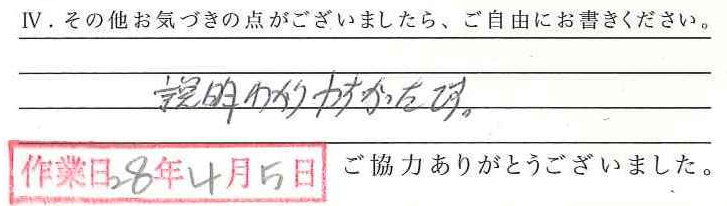 Ⅳ．その他お気づきの点がございましたら、ご自由にお書きください。
説明わかりやすかったです。
作業日28年4月5日
ご協力ありがとうございました。